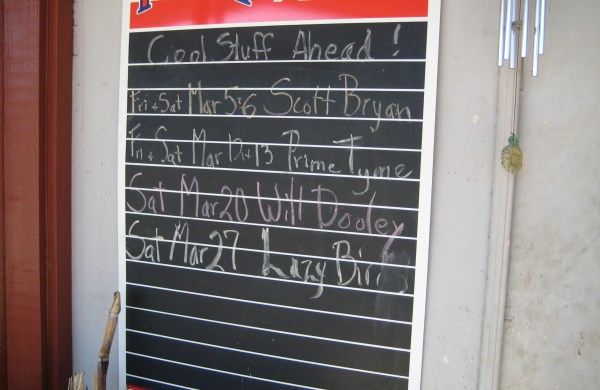 Cool Stuff Ahead!
Fri + Sat Mar 5+6 Scott Bryan
Fri + Sat Mar 12+13 Prime Tyme
Sat Mar 20 Will Dooley
Sat Mar 27 Lazy